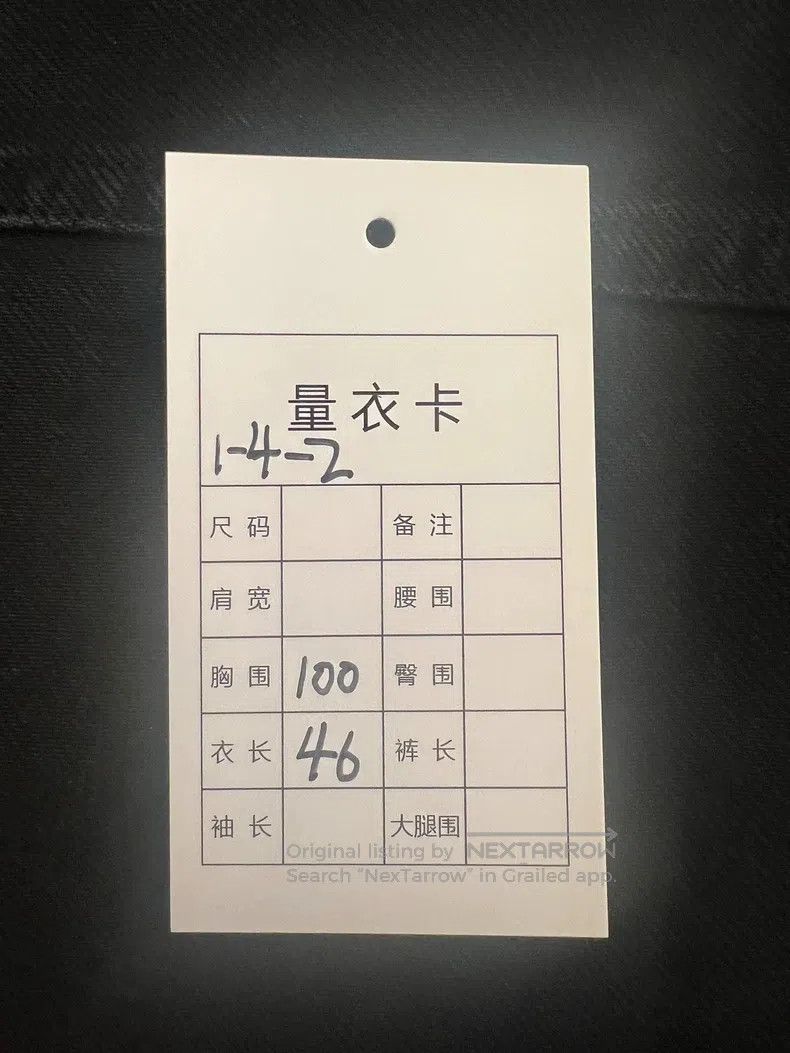 量衣卡
1-4-2
尺码 备注
肩宽 腰围
胸围 100 臀围
衣长 46 裤长
袖长 大腿围
Original listing by NEXTARROW
Search "NexTarrow" in Grailed app.